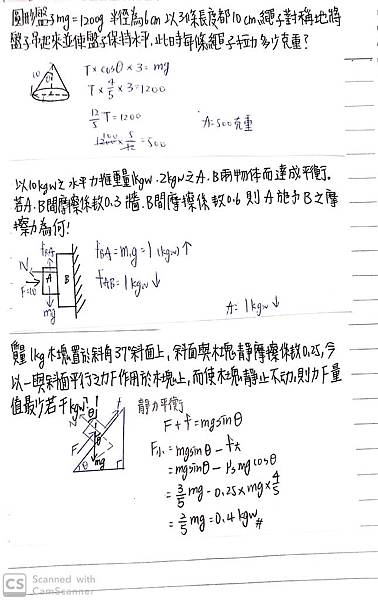 圓形盤子mg=1200g 半徑為6cm 以3條長度都10cm繩子對稱地將
盤子吊起來並使盤子保持水平,此時每條繩子拉力多少克重?
10
θ
6
T×cosθ×3=mg
T×4/5×3=1200
12/5 T=1200
100
1200×5/12=500
A=500克重
以10kgw之水平力推重量1kgw、2kgw之A、B兩物体而達成平衡。
若A、B間摩擦係數0.3 牆、B間摩擦係數0.6 則A施予B之摩
擦力為何!
fBA
N
A
B
F=10
mg
fBA=m1g=1(kgw)↑
fAB=1kgw↓
A=1kgw↓
質量1kg木塊置於斜角37°斜面上,斜面與木塊靜摩擦係數0.25,今
以一與斜面平行之力F作用於木塊上,而使木塊靜止不動,則力F量
值最少若干kgw?
N
θ
f
F
θ
mg
靜力平衡
F+f=mgsinθ
F小=mgsinθ-f大
=mgsinθ-μsmgcosθ
=3/5mg-0.25×mg×4/5
=2/5mg=0.4kgw#
CS
Scanned with
CamScanner